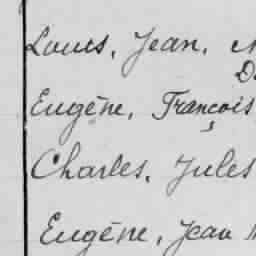 Louis, Jean,
Eugène, François
Charles, Jules
Eugène, Jean